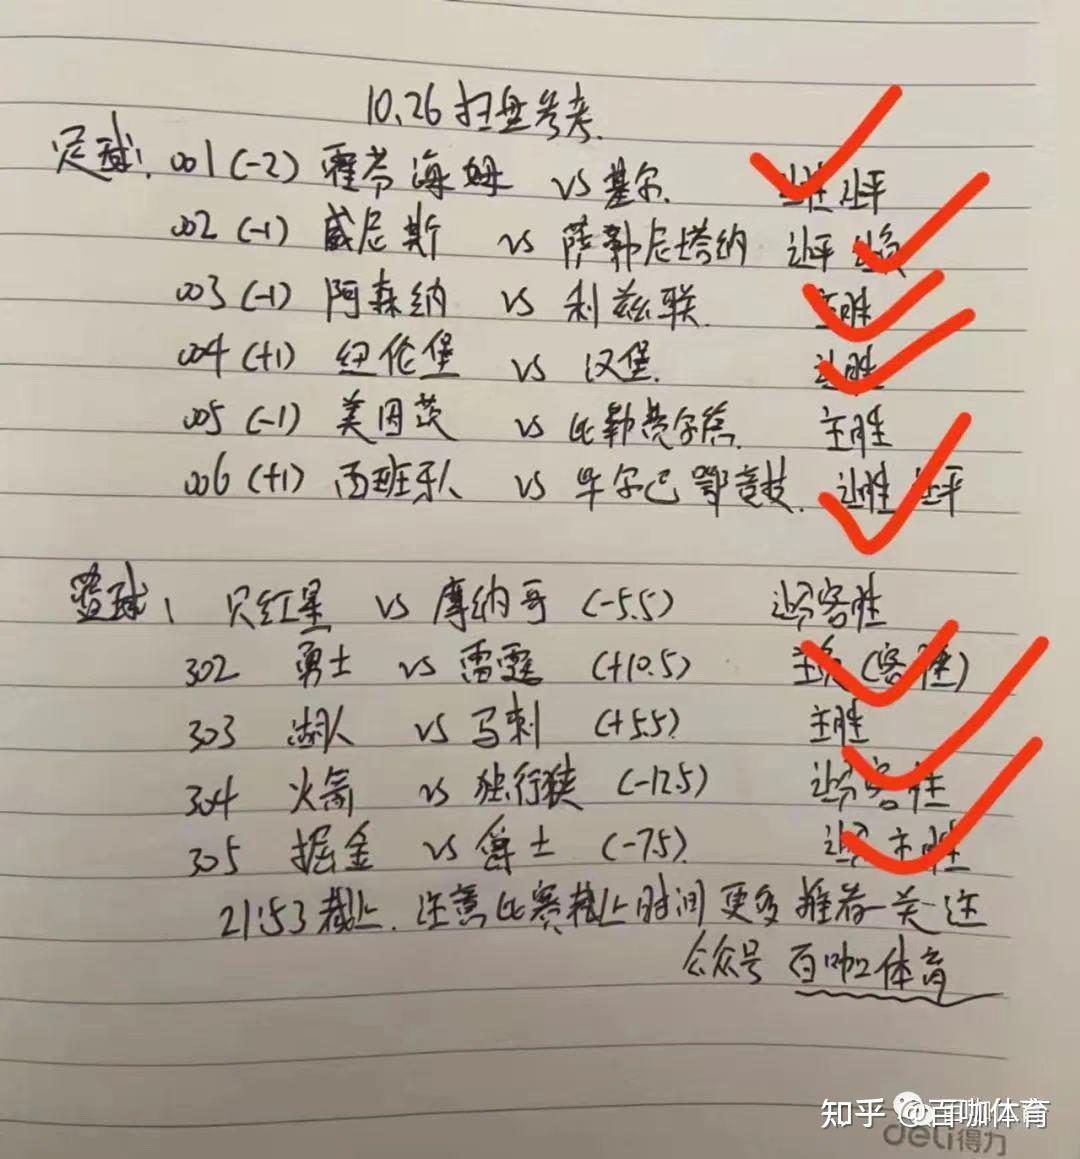 10.26 扫盘参考.
足球: 001 (-2) 霍芬海姆 VS 基尔. 让胜 让平
002 (-1) 威尼斯 VS 萨勒尼塔纳 让平 让负
003 (-1) 阿森纳 VS 利兹联. 主胜
004 (+1) 纽伦堡 VS 汉堡. 让胜
005 (-1) 美因茨 VS 比勒费尔德. 主胜
006 (+1) 西班牙人 VS 毕尔巴鄂竞技. 让胜 让平
篮球: 贝红星 VS 摩纳哥 (-5.5) 让分客胜
302 勇士 VS 雷霆 (+10.5) 主负 (客胜)
303 湖人 VS 马刺 (+5.5) 主胜
304 火箭 VS 独行侠 (-12.5) 让分客胜
305 掘金 VS 爵士 (-7.5) 让分主胜
21:53 截止. 注意比赛截止时间 更多推荐一关一注
公众号 百咖体育
知乎 @百咖体育
deli 得力